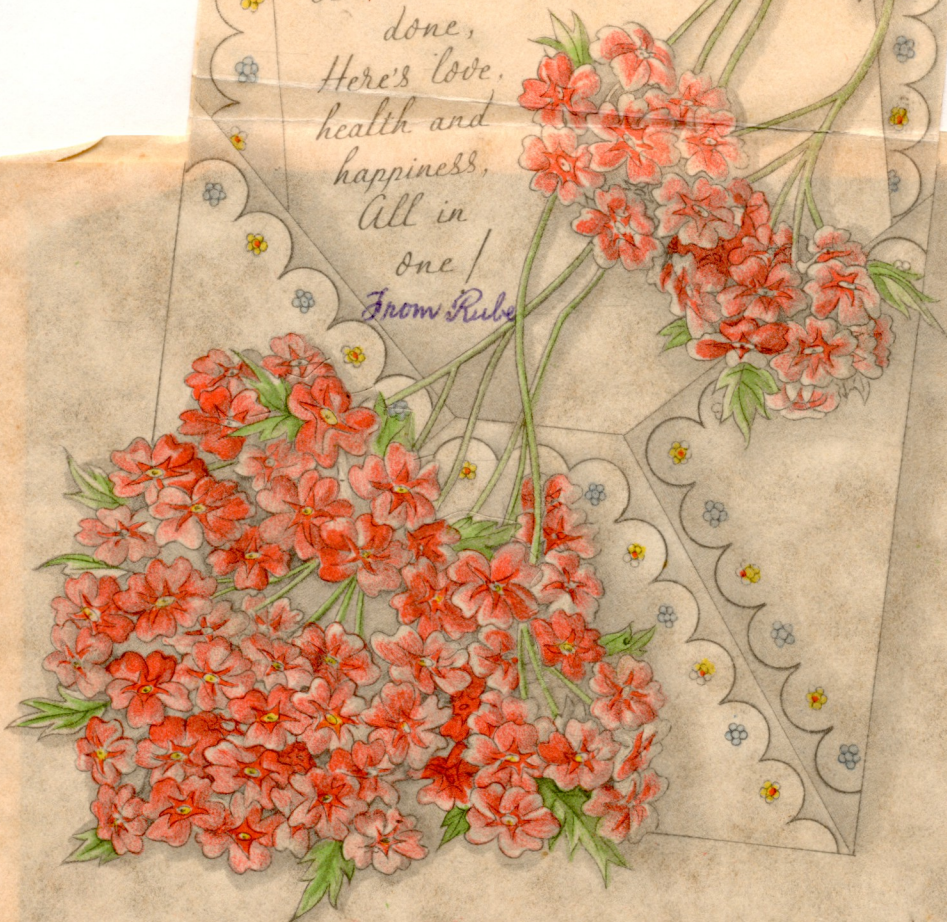 done,
Here's love,
health and
happiness,
All in
one!
From Rube